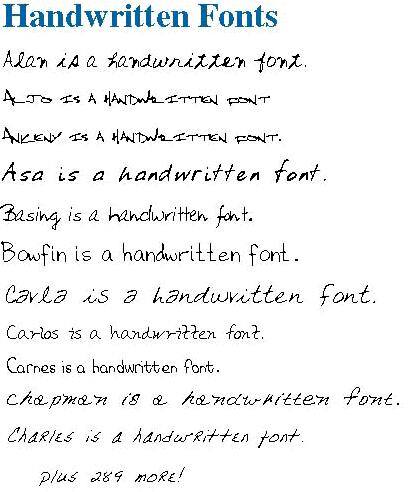 Handwritten Fonts
Alan is a handwritten font.
Alto is a handwritten font
Ankeny is a handwritten font.
Asa is a handwritten font.
Basing is a handwritten font.
Bowfin is a handwritten font.
Carla is a handwritten font.
Carlos is a handwritten font.
Carnes is a handwritten font.
Chapman is a handwritten font.
Charles is a handwritten font.
plus 289 more!